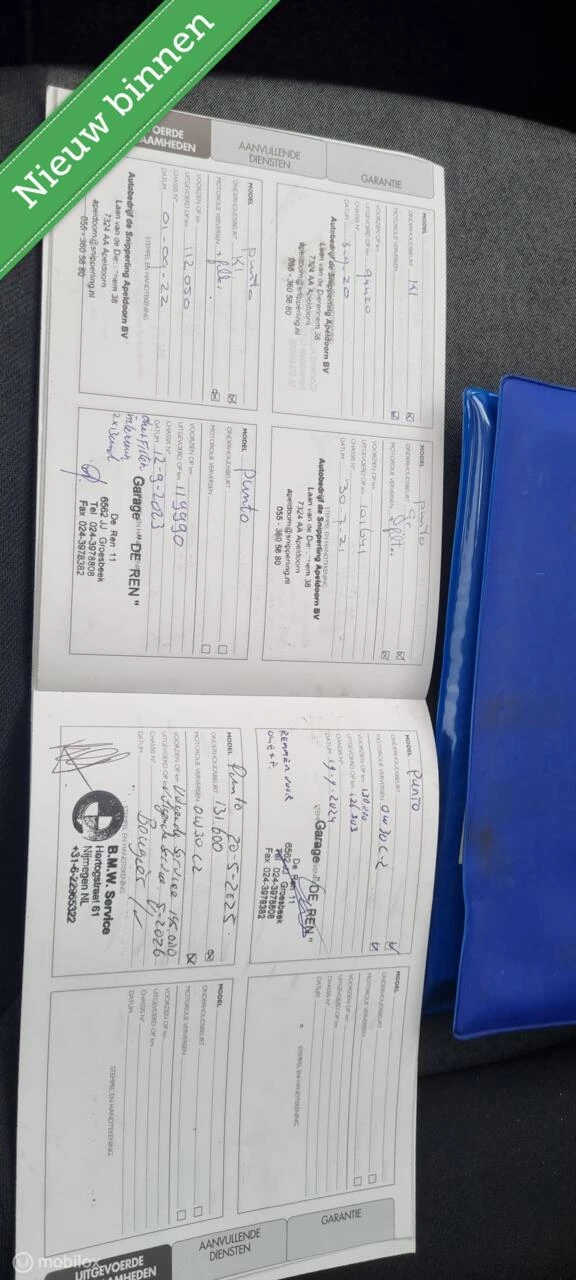 Nieuw binnen
AANVULLENDE
DIENSTEN
GARANTIE
MODEL
ONDERHOUDSBEURT KL
MOTOROLIE VERVERSEN
VOORZIEN OP km
UITGEVOERD OP km 94420
CHASSIS N°
DATUM 3-9-20
Autobedrijf de Snipperling Apeldoorn BV
Laan van de Dierenriem 38
7324 AA Apeldoorn
apeldoorn@snipperling.nl
055 - 360 58 80
MODEL punto
ONDERHOUDSBEURT gr
MOTOROLIE VERVERSEN
VOORZIEN OP km
UITGEVOERD OP km 101641
CHASSIS N°
DATUM 30-7-21
Autobedrijf de Snipperling Apeldoorn BV
7324 AA Apeldoorn
apeldoorn@snipperling.nl
055 - 360 58 80
MODEL punto
ONDERHOUDSBEURT KL
MOTOROLIE VERVERSEN + filter.
VOORZIEN OP km
UITGEVOERD OP km 112050
CHASSIS N°
DATUM 01-09-22
STEMPEL EN HANDTEKENING
Autobedrijf de Snipperling Apeldoorn BV
7324 AA Apeldoorn
apeldoorn@snipperling.nl
055 - 360 58 80
MODEL punto
ONDERHOUDSBEURT
MOTOROLIE VERVERSEN
VOORZIEN OP km
UITGEVOERD OP km 119990
CHASSIS N°
DATUM 12-9-2023
Garage "DE REN"
De Ren 11
6562 JJ Groesbeek
Tel 024-3978808
Fax 024-3978382
MODEL punto
ONDERHOUDSBEURT 0W30 C-2
MOTOROLIE VERVERSEN
VOORZIEN OP km
UITGEVOERD OP km 126303
CHASSIS N°
DATUM 19-9-2024
REMMEN VOOR
Garage "DE REN"
De Ren 11
6562 JJ Groesbeek
Tel 024-3978808
Fax 024-3978382
MODEL
ONDERHOUDSBEURT
MOTOROLIE VERVERSEN
VOORZIEN OP km
UITGEVOERD OP km
CHASSIS N°
DATUM
STEMPEL EN HANDTEKENING
MODEL Punto 20-5-2025.
ONDERHOUDSBEURT 131.600
MOTOROLIE VERVERSEN 0W30 C2
VOORZIEN OP km Volgende Service 155.000
UITGEVOERD OP km Volgende Service 5-2026
CHASSIS N°
DATUM Bougies
STEMPEL EN HANDTEKENING
B.M.W. Service
Hertogstraat 61
Nijmegen NL
+31-6-22965322
MODEL
ONDERHOUDSBEURT
MOTOROLIE VERVERSEN
VOORZIEN OP km
UITGEVOERD OP km
CHASSIS N°
DATUM
STEMPEL EN HANDTEKENING
GARANTIE
AANVULLENDE
DIENSTEN
UITGEVOERDE
mobilox